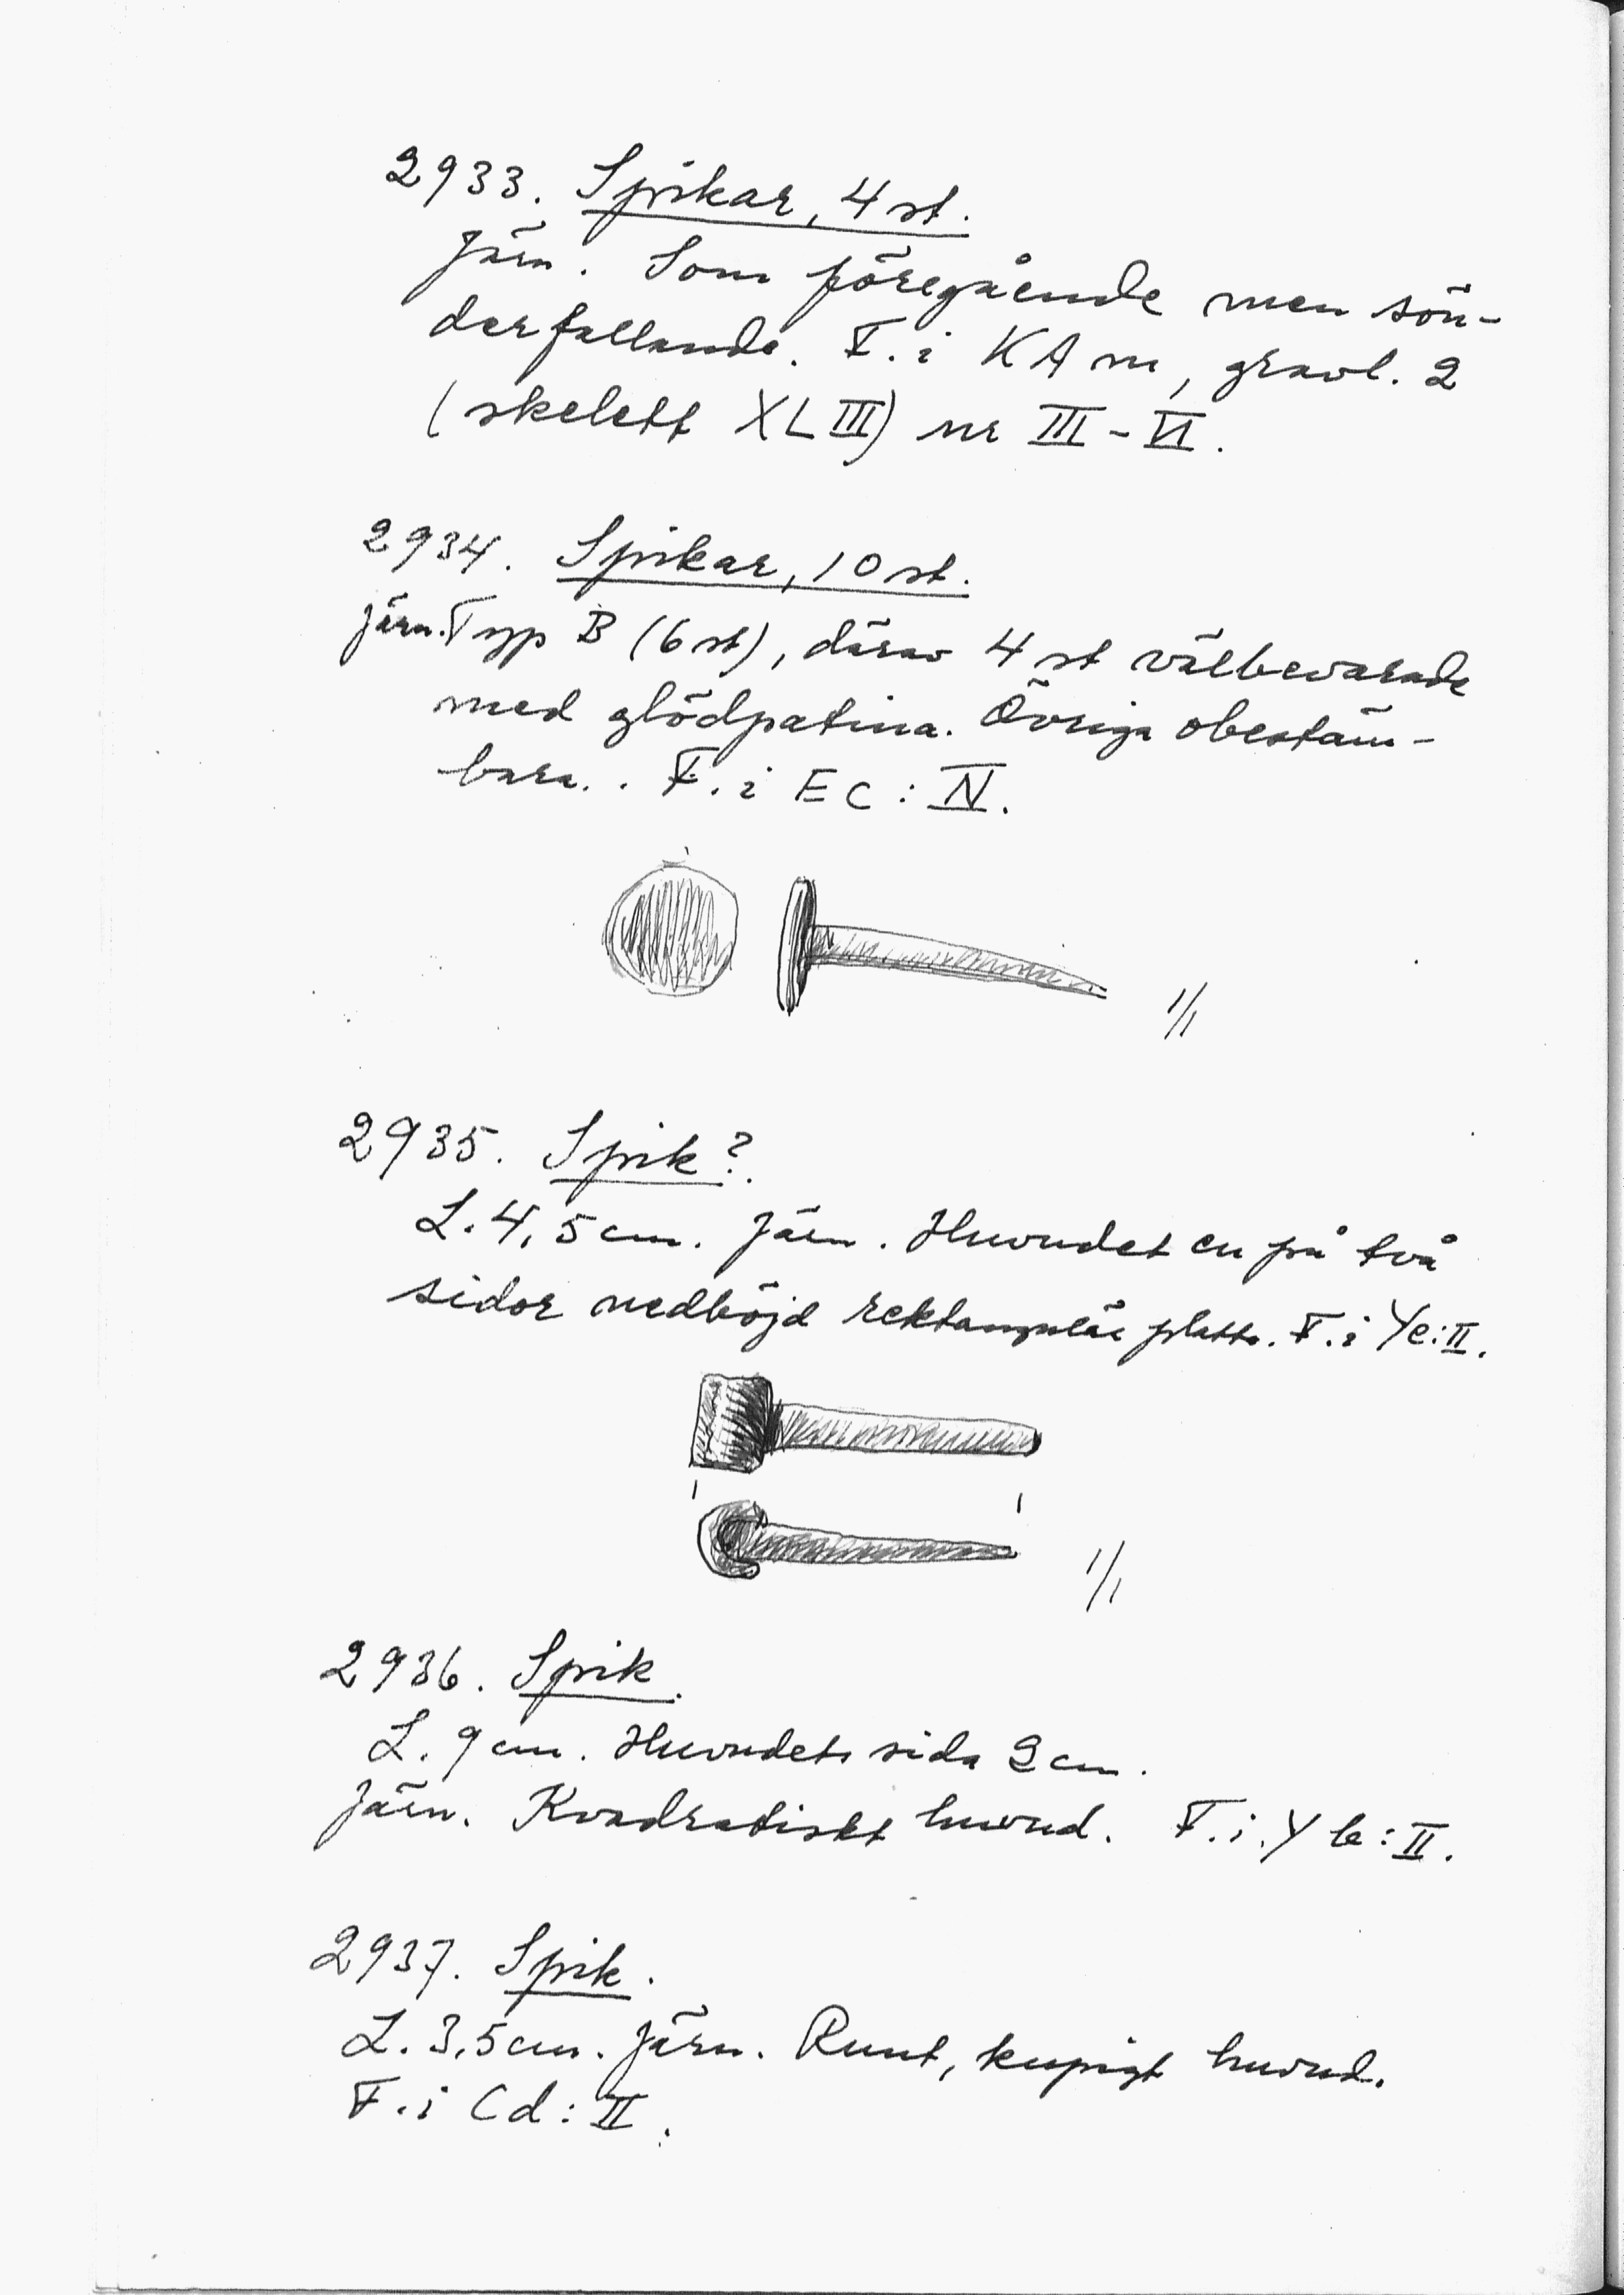 2933. Spikar, 4 st.
Järn. Som föregående men sön-
derfallande. F. i KA m, gravl. 2
(skelett XLIII) nr III - VI.
2934. Spikar, 10 st.
Järn. Typ B (6 st), därav 4 st välbevarade
med glödpatina. Övriga obestäm-
bara. . F. i EC : IV.
1/1
2935. Spik?
L. 4,5 cm. Järn. Huvudet en på två
sidor nedböjd rektangulär platta. F. i Ye:II.
1/1
2936. Spik.
L. 9 cm. Huvudets sida 2 cm.
Järn. Kvadratiskt huvud. F. i. Y b : II.
2937. Spik.
L. 3,5 cm. Järn. Runt, kupigt huvud.
F. i Cd : II.